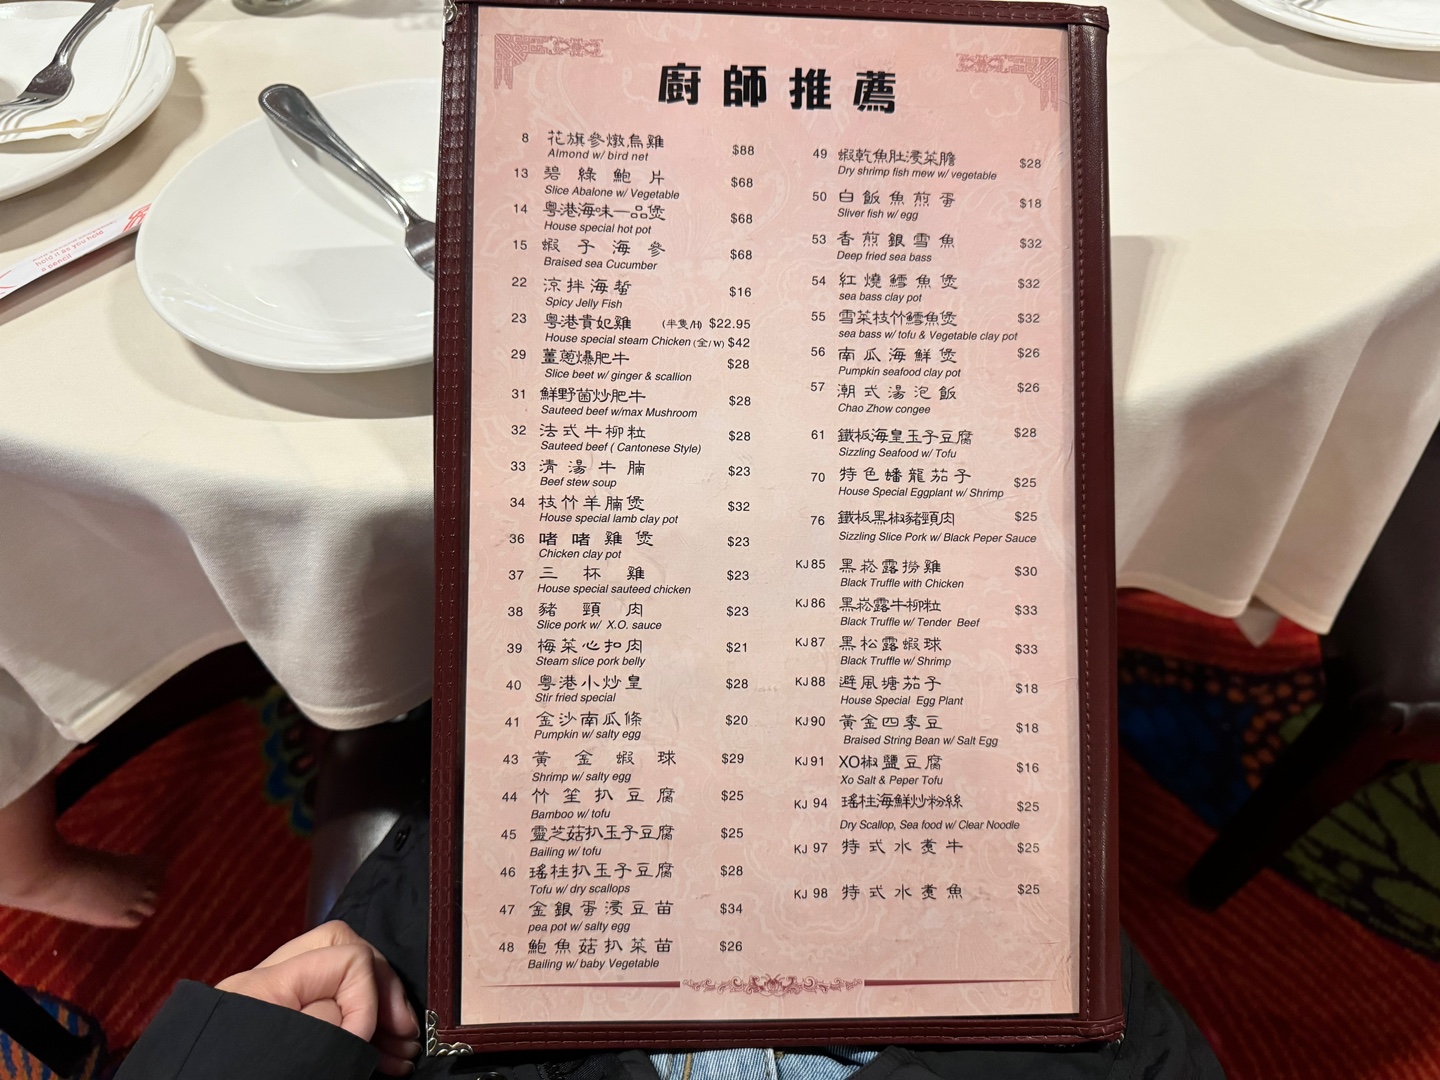 廚師推薦
8 花旗參燉烏雞 $88
Almond w/ bird net
13 碧綠鮑片 $68
Slice Abalone w/ Vegetable
14 粵港海味一品煲 $68
House special hot pot
15 蝦子海參 $68
Braised sea Cucumber
22 涼拌海蜇 $16
Spicy Jelly Fish
23 粵港貴妃雞 (半隻/H) $22.95
House special steam Chicken (全/W) $42
29 薑蔥爆肥牛 $28
Slice beet w/ ginger & scallion
31 鮮野菌炒肥牛 $28
Sauteed beef w/max Mushroom
32 法式牛柳粒 $28
Sauteed beef ( Cantonese Style)
33 清湯牛腩 $23
Beef stew soup
34 枝竹羊腩煲 $32
House special lamb clay pot
36 啫啫雞煲 $23
Chicken clay pot
37 三杯雞 $23
House special sauteed chicken
38 豬頸肉 $23
Slice pork w/ X.O. sauce
39 梅菜心扣肉 $21
Steam slice pork belly
40 粵港小炒皇 $28
Stir fried special
41 金沙南瓜條 $20
Pumpkin w/ salty egg
43 黃金蝦球 $29
Shrimp w/ salty egg
44 竹笙扒豆腐 $25
Bamboo w/ tofu
45 靈芝菇扒玉子豆腐 $25
Bailing w/ tofu
46 瑤柱扒玉子豆腐 $28
Tofu w/ dry scallops
47 金銀蛋浸豆苗 $34
pea pot w/ salty egg
48 鮑魚菇扒菜苗 $26
Bailing w/ baby Vegetable
49 蝦乾魚肚浸菜膽 $28
Dry shrimp fish mew w/ vegetable
50 白飯魚煎蛋 $18
Sliver fish w/ egg
53 香煎銀雪魚 $32
Deep fried sea bass
54 紅燒鱈魚煲 $32
sea bass clay pot
55 雪菜枝竹鱈魚煲 $32
sea bass w/ tofu & Vegetable clay pot
56 南瓜海鮮煲 $26
Pumpkin seafood clay pot
57 潮式湯泡飯 $26
Chao Zhow congee
61 鐵板海皇玉子豆腐 $28
Sizzling Seafood w/ Tofu
70 特色蟠龍茄子 $25
House Special Eggplant w/ Shrimp
76 鐵板黑椒豬頸肉 $25
Sizzling Slice Pork w/ Black Peper Sauce
KJ 85 黑崧露撈雞 $30
Black Truffle with Chicken
KJ 86 黑崧露牛柳粒 $33
Black Truffle w/ Tender Beef
KJ 87 黑松露蝦球 $33
Black Truffle w/ Shrimp
KJ 88 避風塘茄子 $18
House Special Egg Plant
KJ 90 黃金四季豆 $18
Braised String Bean w/ Salt Egg
KJ 91 XO椒鹽豆腐 $16
Xo Salt & Peper Tofu
KJ 94 瑤柱海鮮炒粉絲 $25
Dry Scallop, Sea food w/ Clear Noodle
KJ 97 特式水煮牛 $25
KJ 98 特式水煮魚 $25
hold it as you hold
a pencil